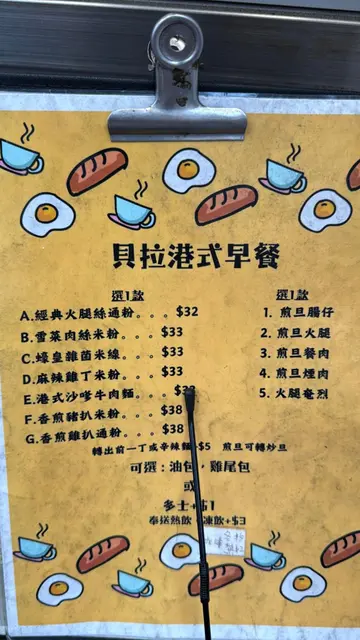 貝拉港式早餐
選1款
A.經典火腿絲通粉。。。$32
B.雪菜肉絲米粉。。。$33
C.蠔皇雜菌米線。。。$33
D.麻辣雞丁米粉。。。$33
E.港式沙嗲牛肉麵。。。
F.香煎豬扒米粉。。。$38
G.香煎雞扒通粉。。。$38
選1款
1. 煎旦腸仔
2. 煎旦火腿
3. 煎旦餐肉
4. 煎旦煙肉
5. 火腿奄列
轉出前一丁或辛辣麵+$5 煎旦可轉炒旦
可選：油包，雞尾包
或
多士+$1
奉送熱飲，凍飲+$3